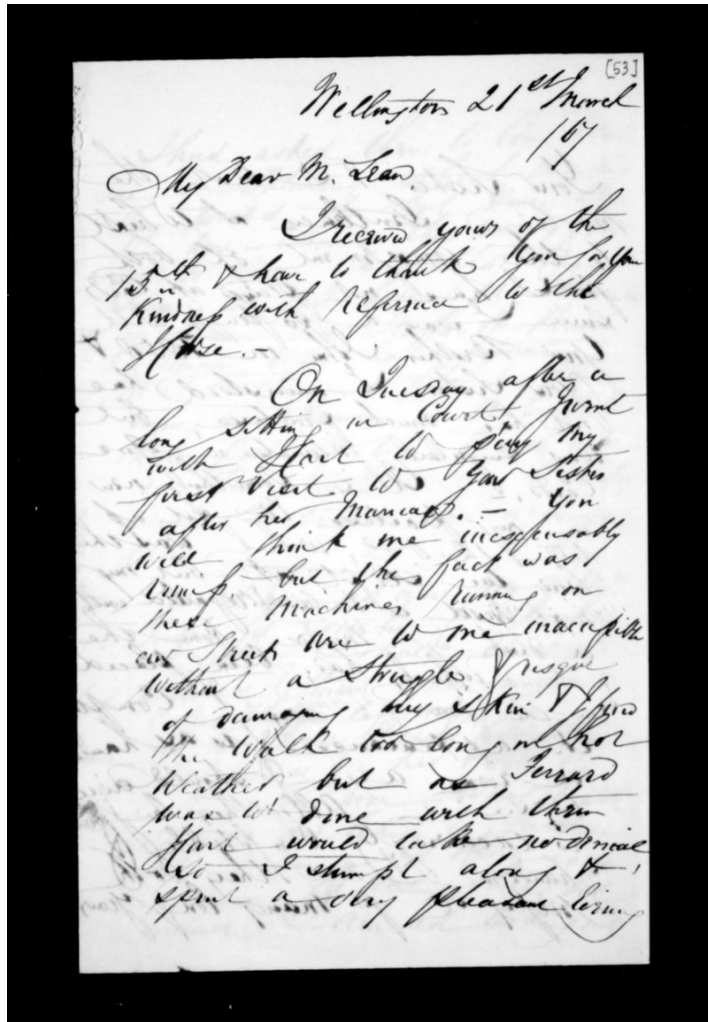 [53]
Wellington 21st March
/67
My Dear McLean.
I received yours of the
15th & have to thank you for your
Kindness with reference to the
Horse. –
On Tuesday after a
long sitting in Court I went
with Hart to pay my
first visit to your Sister
after her Marriage. – You
will think me inexcusably
remiss but the fact was
these Machines running on
our Streets are to me inaccessible
without a Struggle & risque
of damaging my skin & I found
the walk too long in hot
Weather but as
was to dine with them
Hart would take no denial
so I stumpt along &
spent a very pleasant Evening